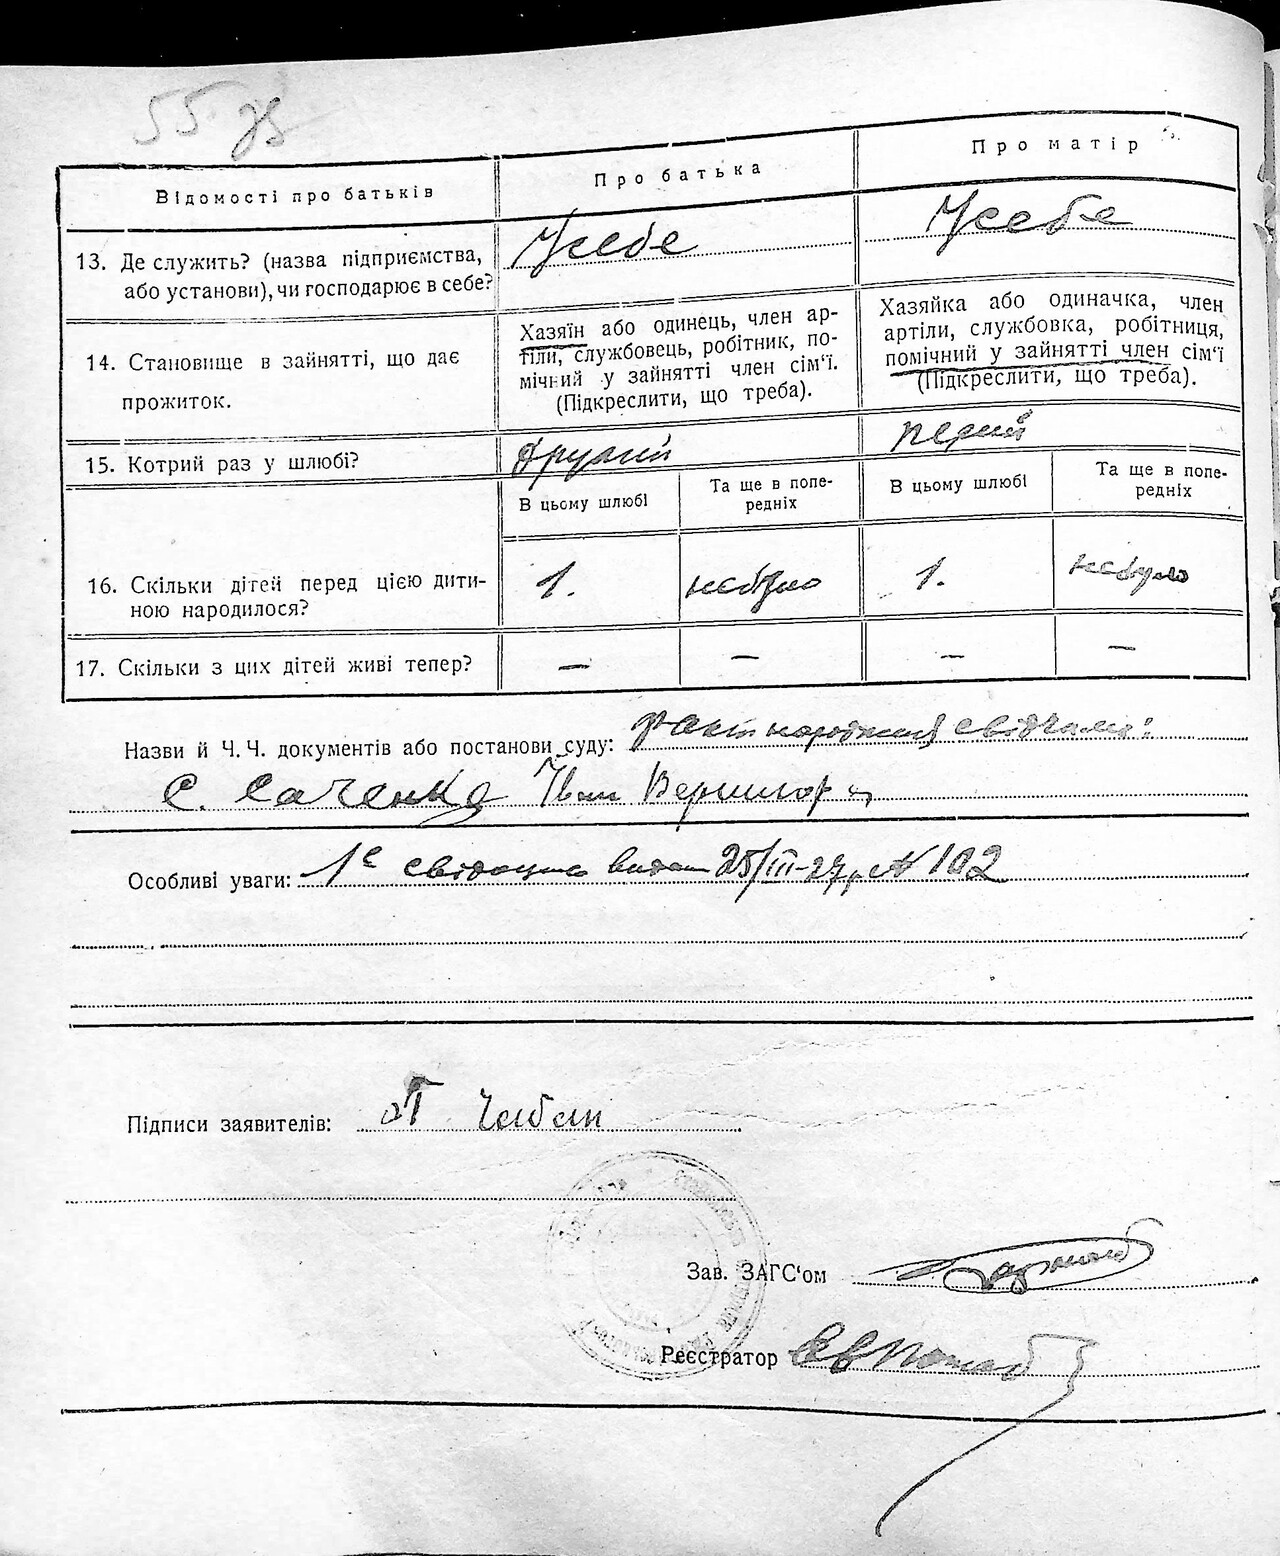 55 зв
Відомості про батьків
Про батька
Про матір
13. Де служить? (назва підприємства, або установи), чи господарює в себе?
У себе
У себе
14. Становище в зайнятті, що дає прожиток.
Хазяїн або одинець, член ар-
тіли, службовець, робітник, по-
мічний у зайнятті член сім'ї.
(Підкреслити, що треба).
Хазяйка або одиначка, член
артіли, службовка, робітниця,
помічний у зайнятті член сім'ї
(Підкреслити, що треба).
15. Котрий раз у шлюбі?
другий
первий
В цьому шлюбі
Та ще в попе-
редніх
В цьому шлюбі
Та ще в попе-
редніх
16. Скільки дітей перед цією дити-
ною народилося?
1.
небуло
1.
небуло
17. Скільки з цих дітей живі тепер?
—
—
—
—
Назви й Ч. Ч. документів або постанови суду: факт народження свідчили:
С. Саченко Іван Вершигора
Особливі уваги: 1е свідоцтво видан 25/III-27р № 102
Підписи заявителів: Чабан
Зав. ЗАГС'ом
Реєстратор